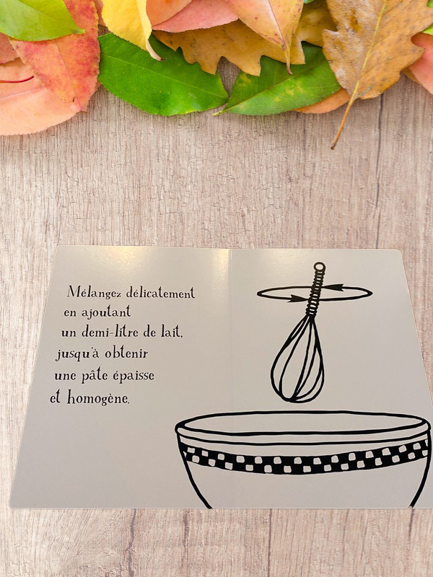 Mélangez délicatement
en ajoutant
un demi-litre de lait,
jusqu'à obtenir
une pâte épaisse
et homogène.